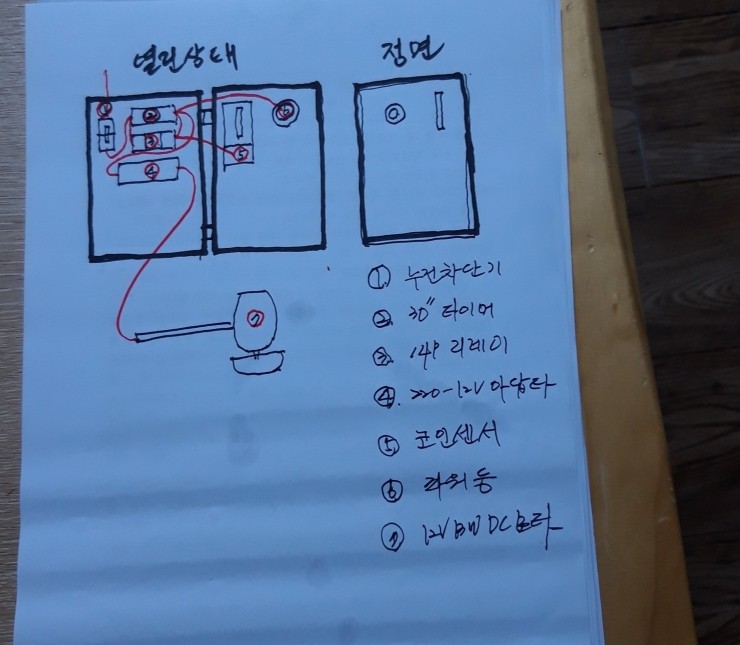 열린상태
정면
① 누전차단기
② 30" 타이머
③ 14P 리레이
④. 220-12V 아답타
⑤ 코인센서
⑥ 파워등
⑦ 12V DC 모타
① ② ⑥
③ ⑤
④
⑦